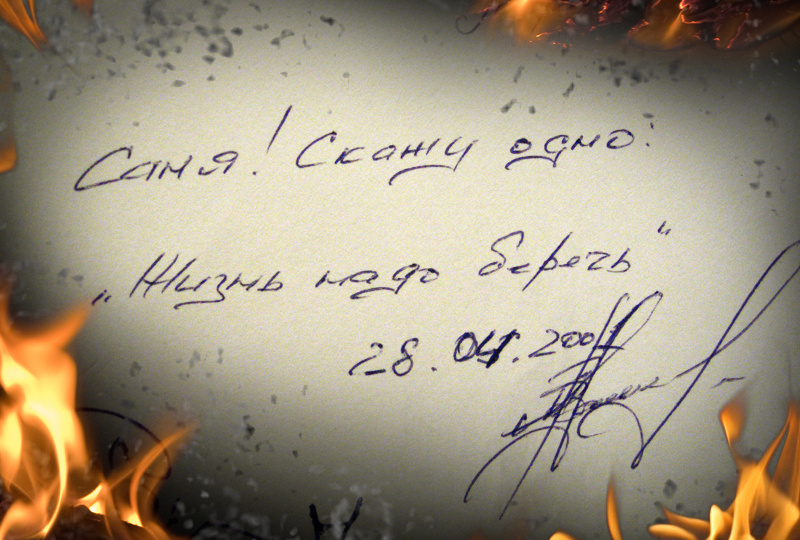 Саня! Скажу одно:
„Жизнь надо беречь“
28.04.200